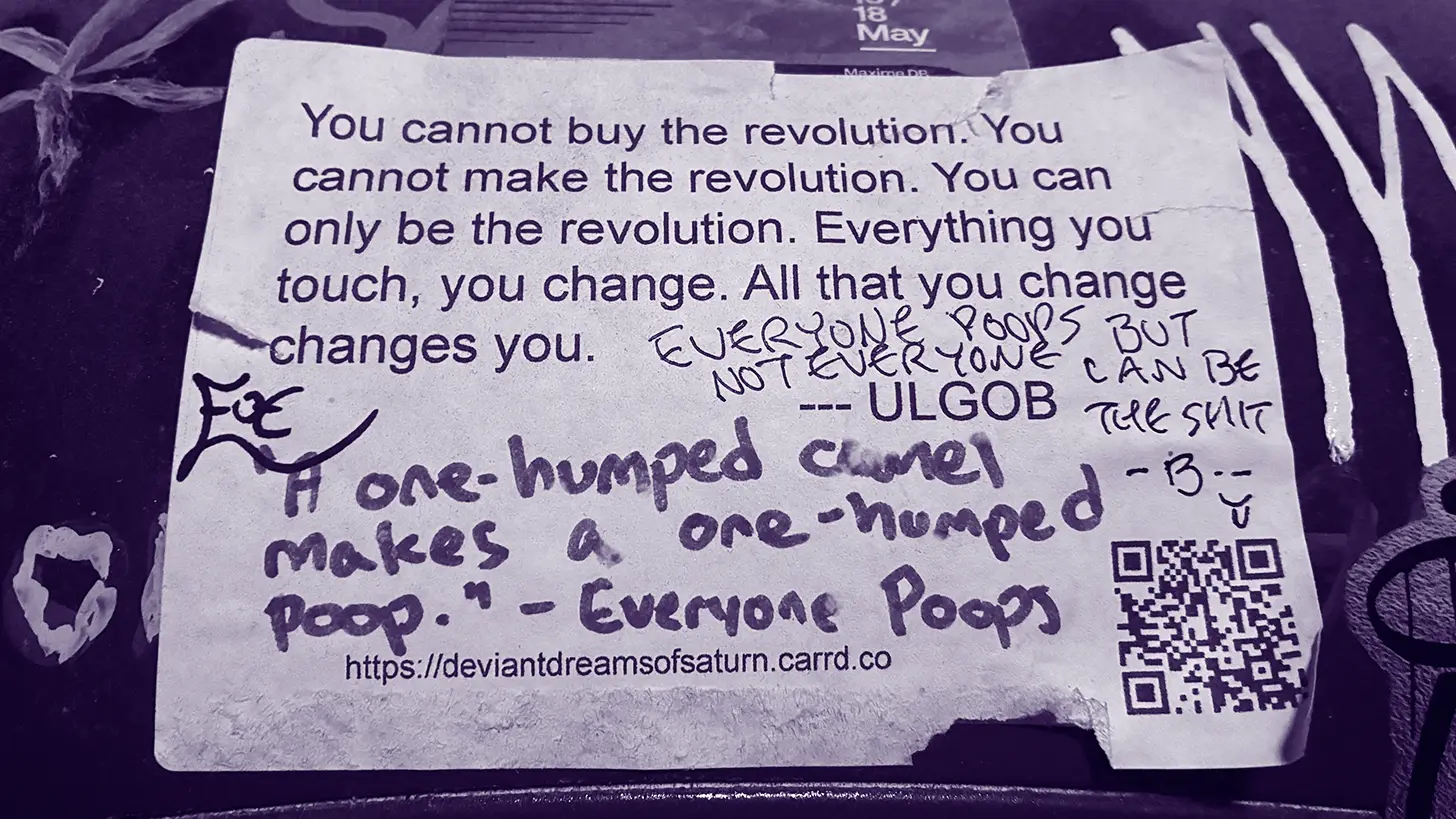 18
May
Maxime DB
You cannot buy the revolution. You
cannot make the revolution. You can
only be the revolution. Everything you
touch, you change. All that you change
changes you.
EVERYONE POOPS BUT
NOT EVERYONE CAN BE
THE SHIT
--- ULGOB
- B --
"A one-humped camel
makes a one-humped
poop." - Everyone Poops
https://deviantdreamsofsaturn.carrd.co